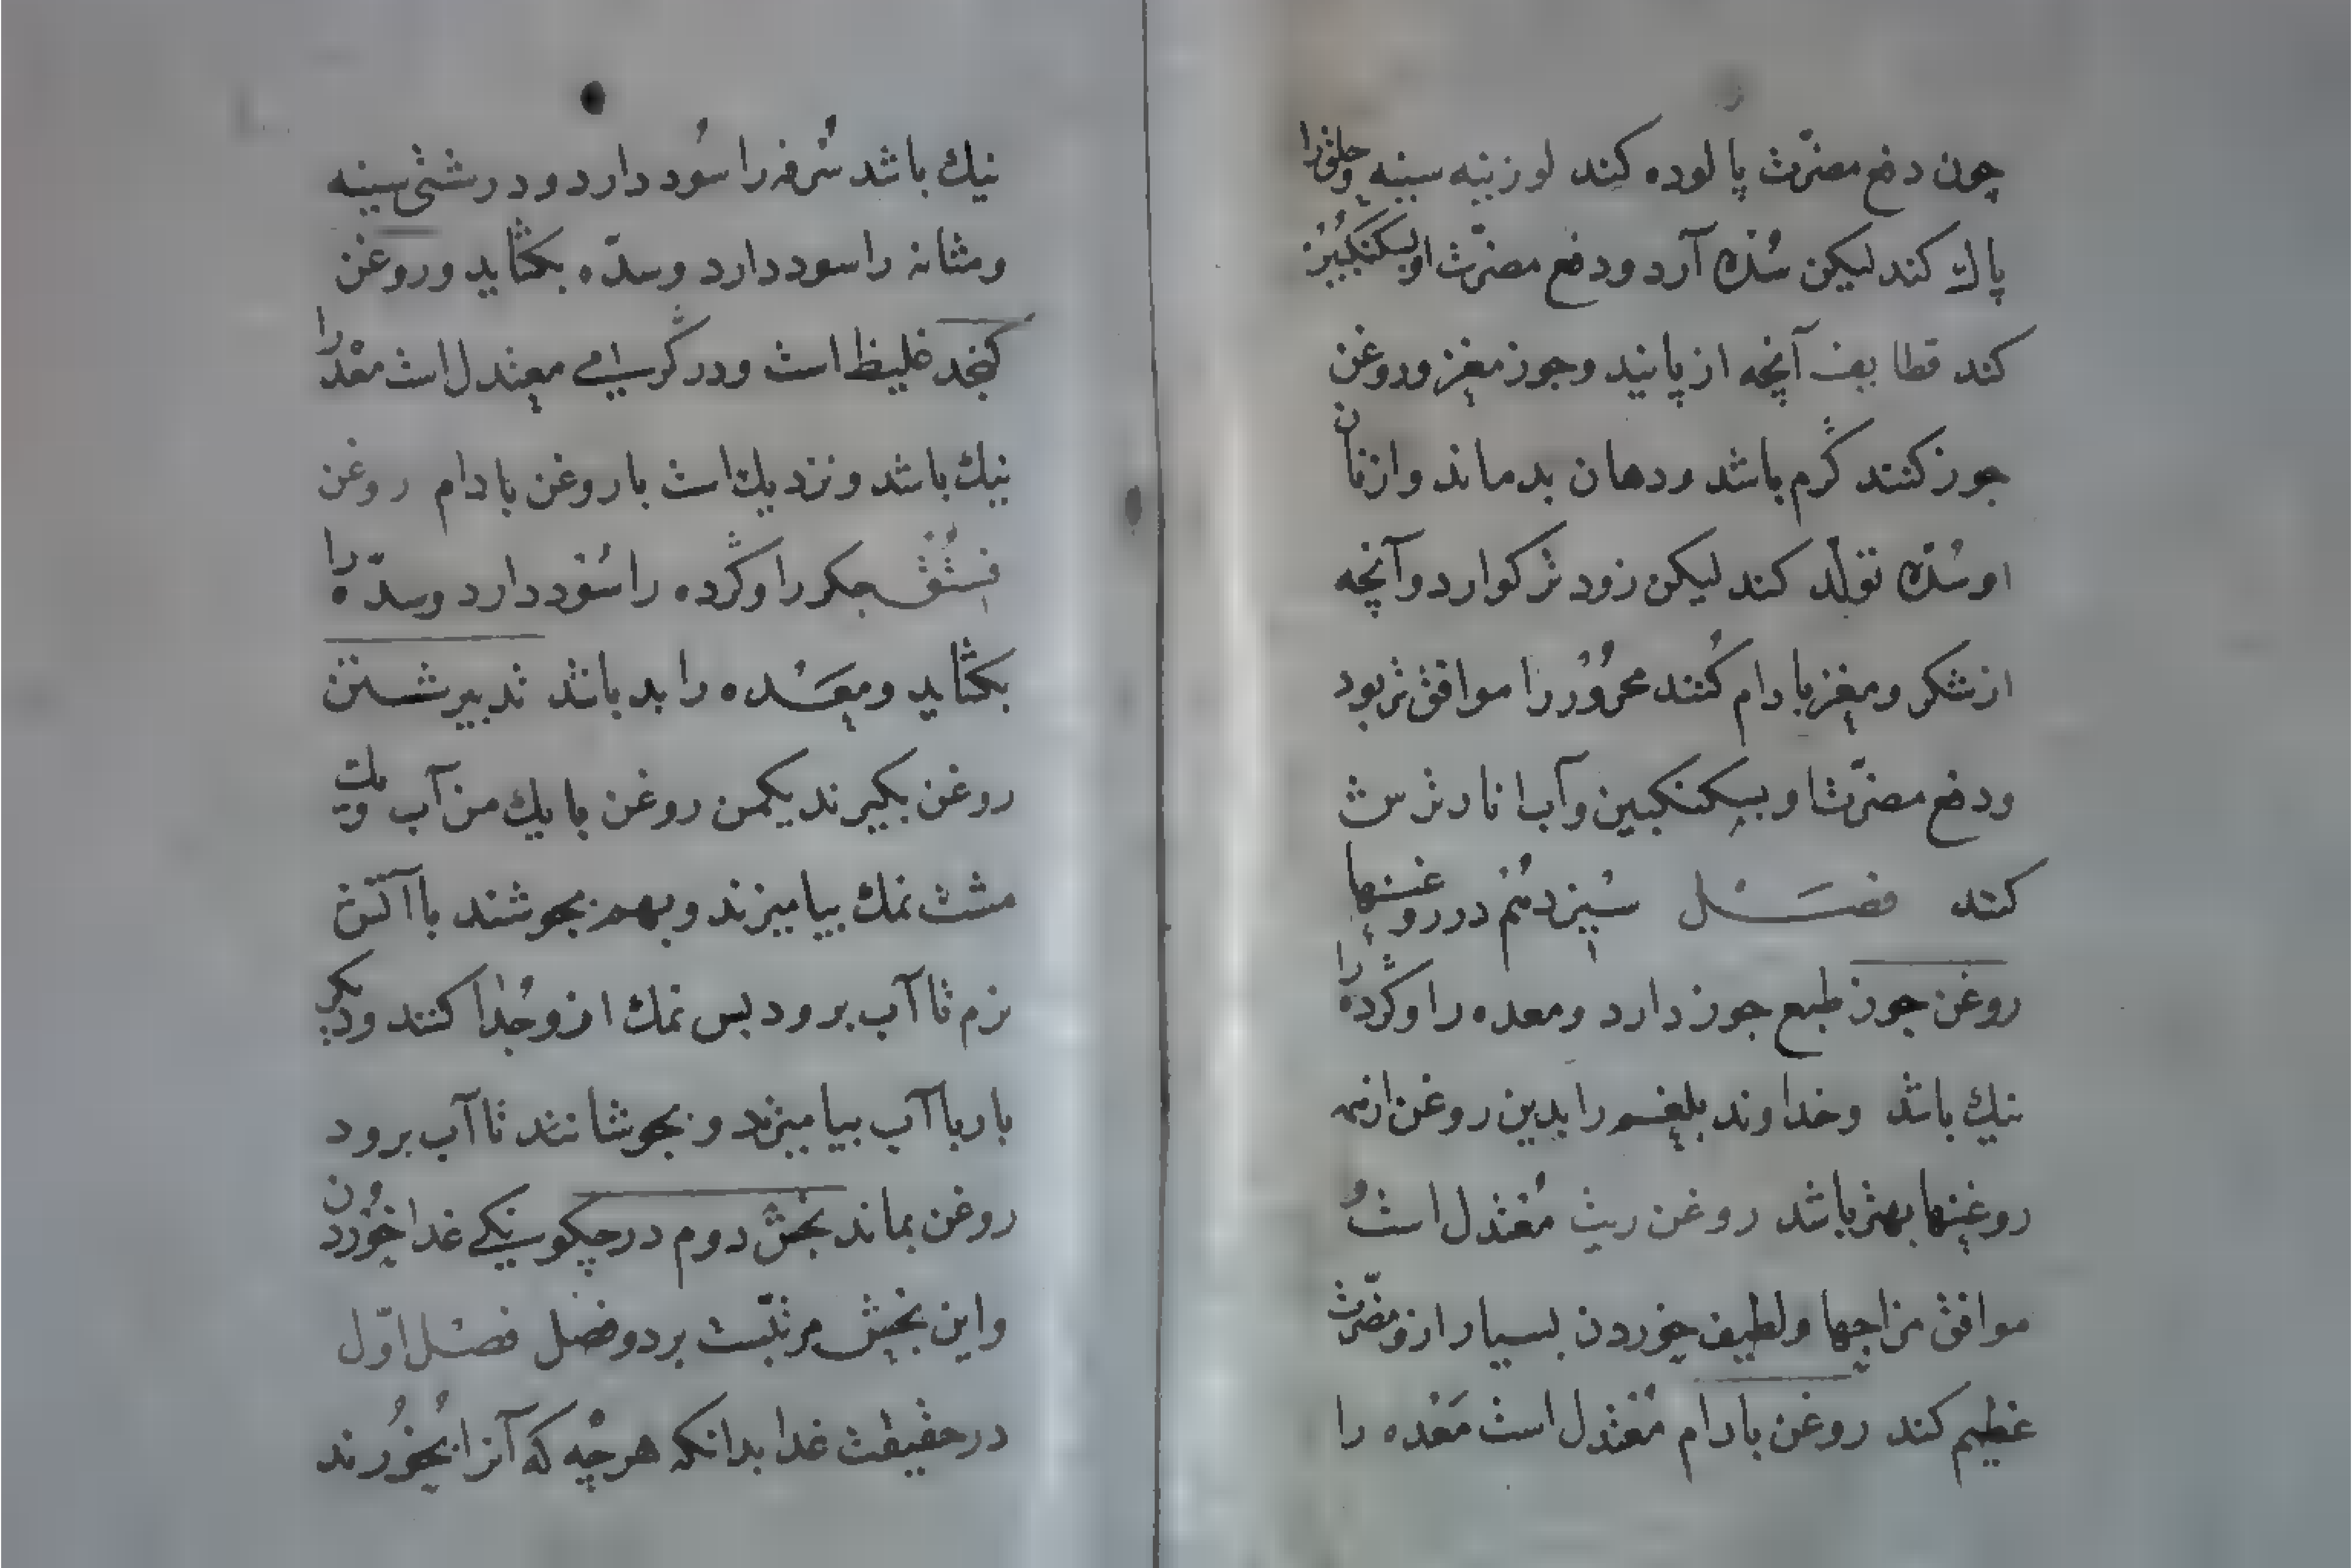 چون دفع مضرّت پالوده کند لوزینه سینه و حلق را
پاک کند لیکن سُدّه آرد و دفع مضرّت او بسکنگبین
کند قطایف آنچه از پانید و جوز مغز و روغن
جوز کنند گرم باشد و دهان بدماند و از نان
او سُدّه تولّد کند لیکن زودتر گوارد و آنچه
از شکر و مغز بادام کُنند محرُور را موافق‌تر بود
و دفع مضرّتها و بسکنگبین و آب انار ترش
کنند فصل سُیزدهُم در روغنها
روغن جوز طبع جوز دارد و معده را و گرده را
نیک باشد و خداوند بلغم را بدین روغن از همه
روغنها بهتر باشد روغن زیت مُعتدل است و
موافق مزاجها و لطیف خوردن بسیار ازو مضرّت
عظیم کند روغن بادام مُعتدل است مَعْده را
نیک باشد سُرفه را سُود دارد و درشتی سینه
و مثانه را سود دارد و سدّه بگشاید و روغن
کنجد غلیظ است و در گرمی معتدل است معْده را
نیک باشد و نزدیک است با روغن بادام روغن
فستُق جگر را و گرده را سُود دارد و سدّه را
بگشاید و مِعَده را بد باشد تدبیر شستن
روغن بگیرند یکمن روغن با یک من آب و یک
مشت نمک بیامیزند و بهم بجوشند با آتش
نرم تا آب برود بس نمک ازو جُدا کنند و دیگر
بار با آب بیامیزند و بجوشانند تا آب برود
روغن بماند بخش دوم در چگونگی غدا خوُردن
و این بخش مرتّبست بر دو فصل فصل اوّل
در حقیقت غدا بدانکه هرچه که آنرا بُخوُرند